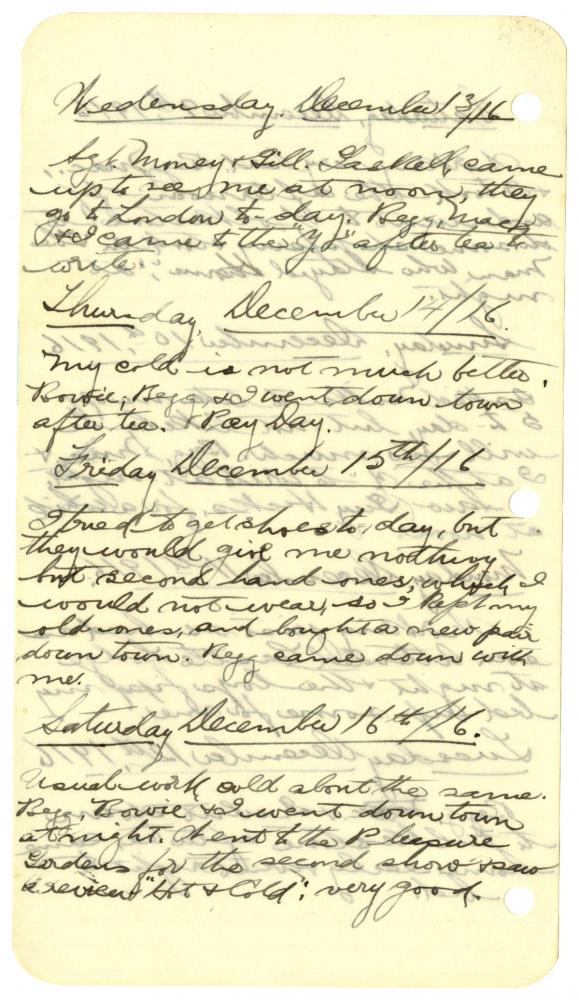 Wedensday. December 13/16
Sgt Money & Gill. Gaskell, came
up to see me at noon, they
go to London to-day. Begg, Mack
& I came to the "Y" after tea to
write.
Thursday, December 14/16.
My cold is not much better.
Bowie, Begg, & I went down town
after tea. Pay Day.
Friday December 15th/16
I tried to get shoes to, day, but
they would give me nothing
but second hand ones, which I
would not wear, so I kept my
old ones, and bought a new pair
down town. Begg came down with
me.
Saturday December 16th/16.
Usual work cold about the same.
Begg, Bowie & I went down town
at night. Went to the Pleasure
Gardens for the second show & saw
a review "Hot & Cold": very good.